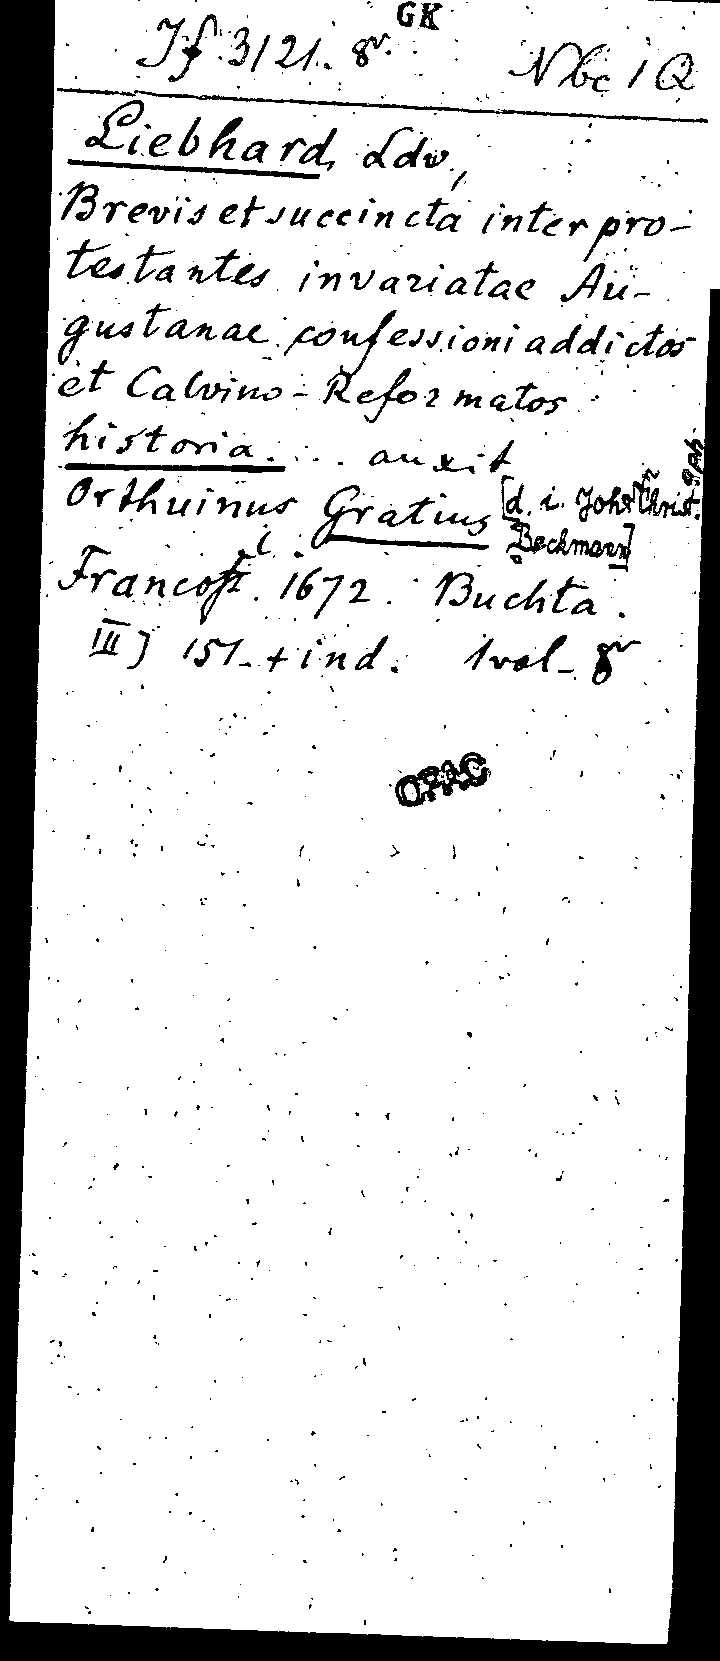 GK
If 3121. 8v. Nbc 1 Q
Liebhard, Ldw,
Brevis et succincta inter pro-
testantes invariatae Au-
gustanae confessioni addictos
et Calvino-Reformatos
historia. ... auxit
Orthuinus Gratius [d. i. Joh. Christ.
Beckmann]
Francofti. 1672. Buchta.
III] 151. + ind. 1 vol. 8v
OPAC